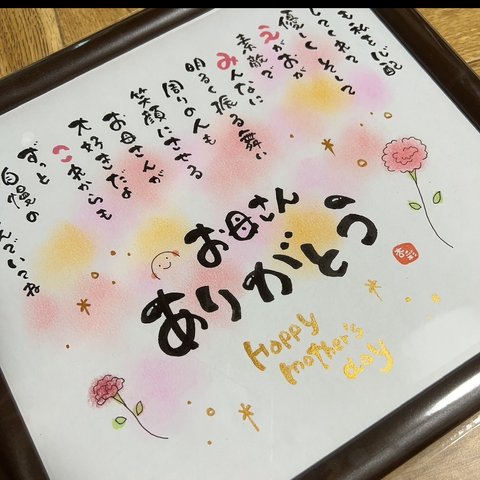 も私も心配
してくれて
優しくそして
えがおが
素敵で
みんなに
明るく振る舞い
周りの人も
笑顔にさせる
お母さんが
大好きだよ
これからも
ずっと
自慢の
んでいてね
お母さん
ありがとう
Happy
mother's
day